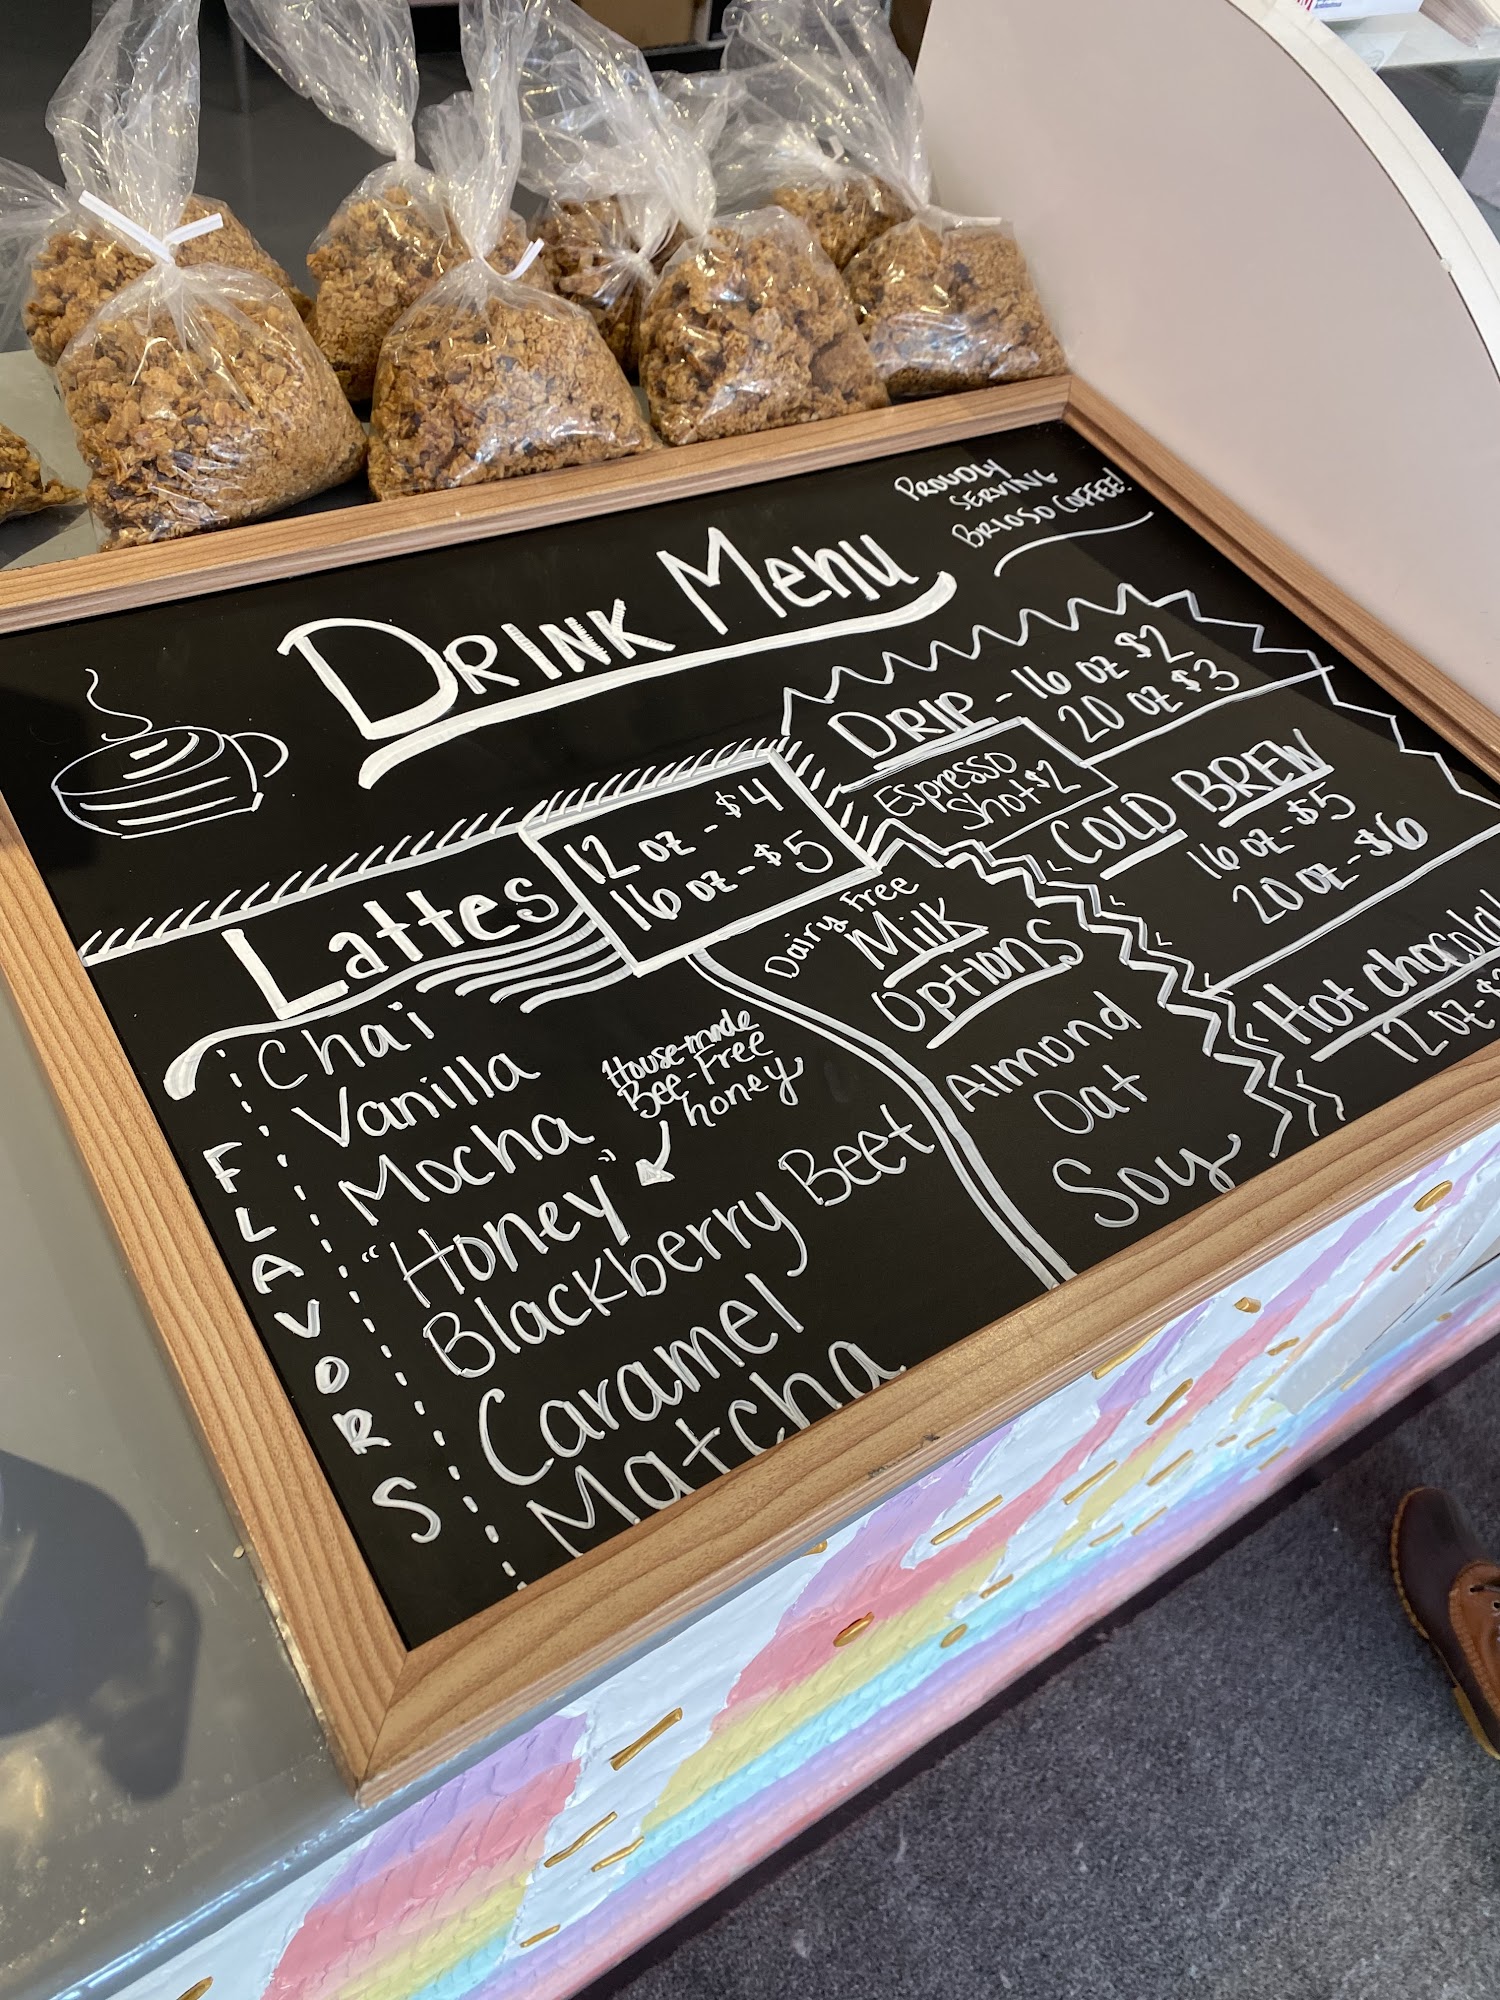 PROUDLY
SERVING
BRIOSO COFFEE!
DRINK MENU
Lattes
12 oz - $4
16 oz - $5
FLAVORS
Chai
Vanilla
Mocha
"Honey"
House-made
Bee-Free
honey
Blackberry Beet
Caramel
Matcha
Dairy Free
Milk
Options
Almond
Oat
Soy
DRIP - 16 oz $2
20 oz $3
Espresso
Shot $2
COLD BREW
16 oz - $5
20 oz - $6
Hot chocola
12 oz - $